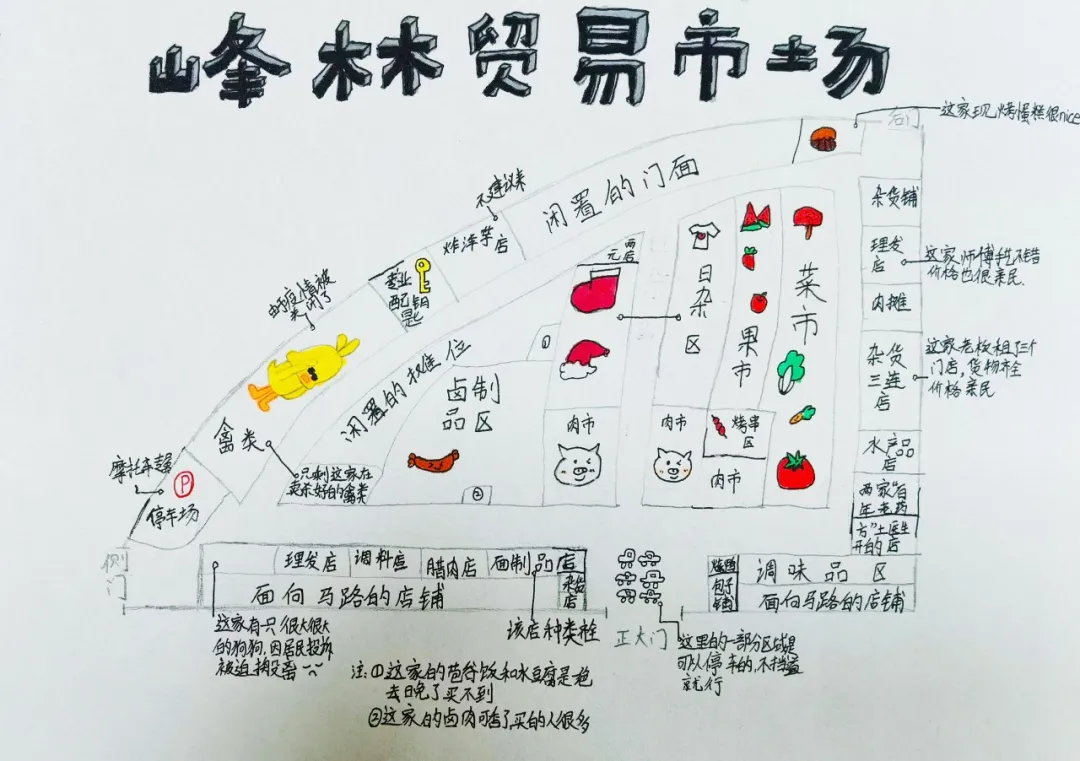 峰林贸易市场
右门
这家现烤蛋糕很nice
不建议来
闲置的门面
炸洋芋店
专业
配钥
匙
关闭了
元
两
店
日杂区
果市
菜市
杂货铺
理发
店
这家师傅手艺不错
价格也很亲民
肉摊
杂货
三连
店
这家老板租了三个
门店,货物齐全
价格亲民
水产品
店
两家“百
年老药
方”土医生
开的店
闲置的摊位
①
卤制
品区
②
肉市
肉市
烤串
区
肉市
禽类
只剩这家在
卖杀好的禽类
摩托车
P
停车场
侧
门
理发店
调料店
腊肉店
面制品店
杂货
店
面向马路的店铺
包子
铺
调味品区
面向马路的店铺
这家有只很大很大
的狗狗,因居民投诉
被迫
该店种类
正大门
这里的一部分区域是
可以停车的,不挡道
就行
注:①这家的苞谷饭和水豆腐是
去晚了买不到
②这家的卤肉可香了买的人很多